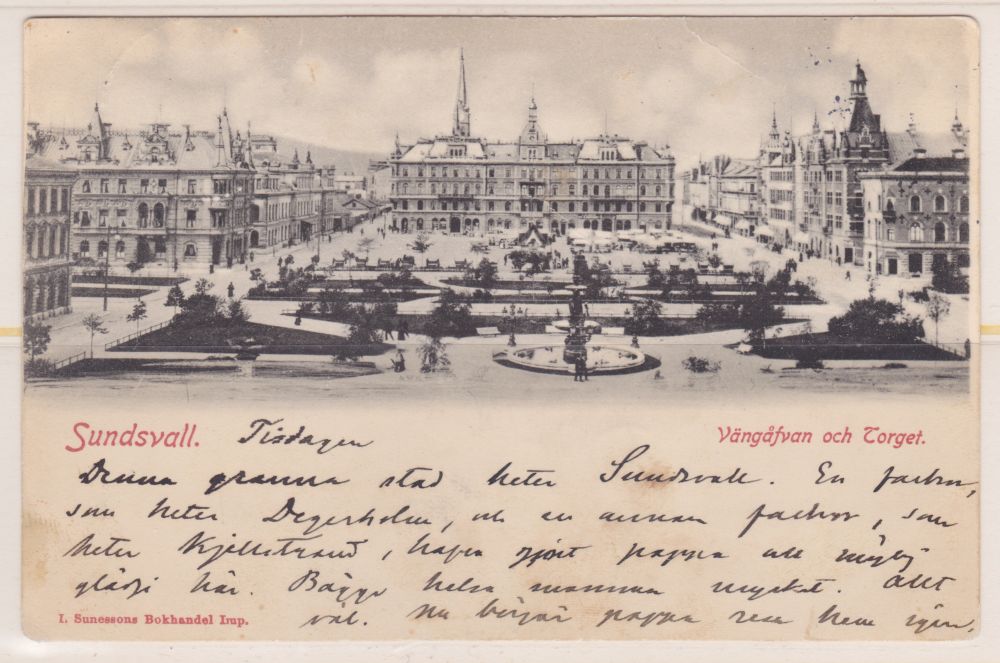 Sundsvall. Tisdagen
Vängåfvan och Torget.
Denna granna stad heter Sundsvall. En farbror,
som heter Degerholm, och en annan farbror, som
heter Kjellstrand, hafva gjort pappa all möjlig
glädje här. Bägge helsa mamma mycket. Allt
väl. Nu börjar pappa resa hem igen.
I. Sunessons Bokhandel Imp.